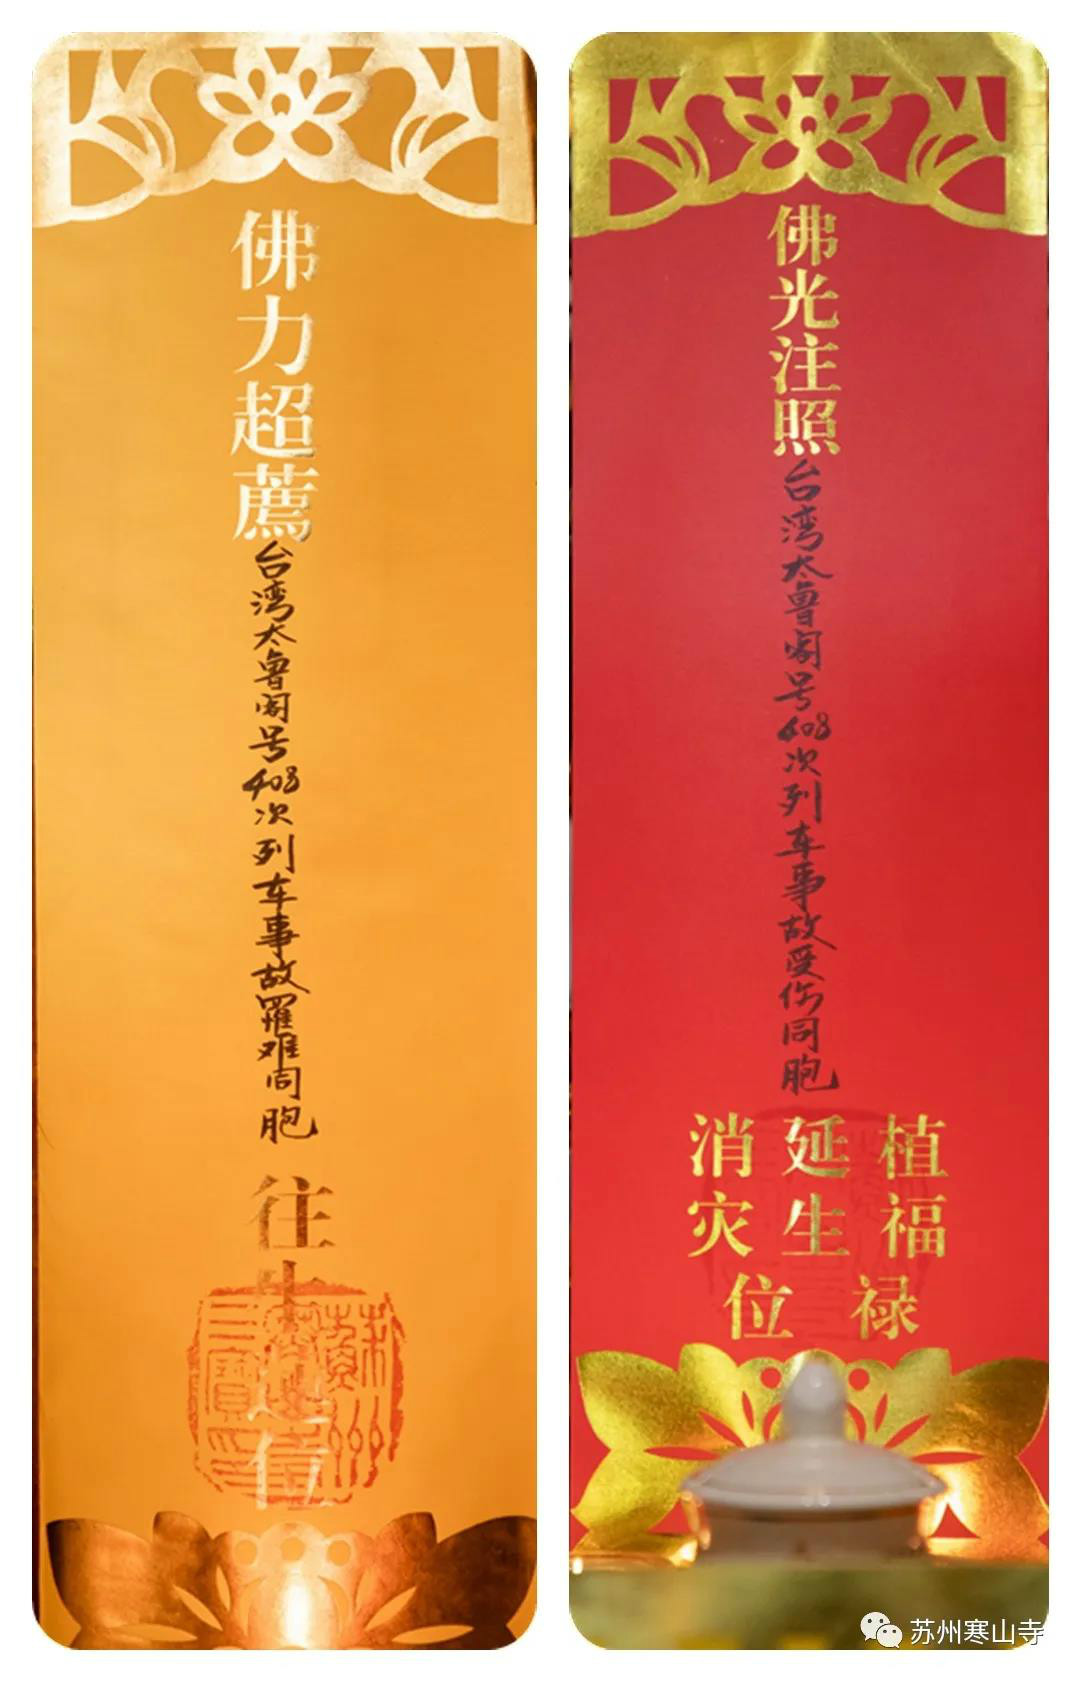 佛力超薦
台湾太鲁阁号408次列车事故罹难同胞
往生莲位
佛光注照
台湾太鲁阁号408次列车事故受伤同胞
植福禄
延生
消灾位
苏州寒山寺